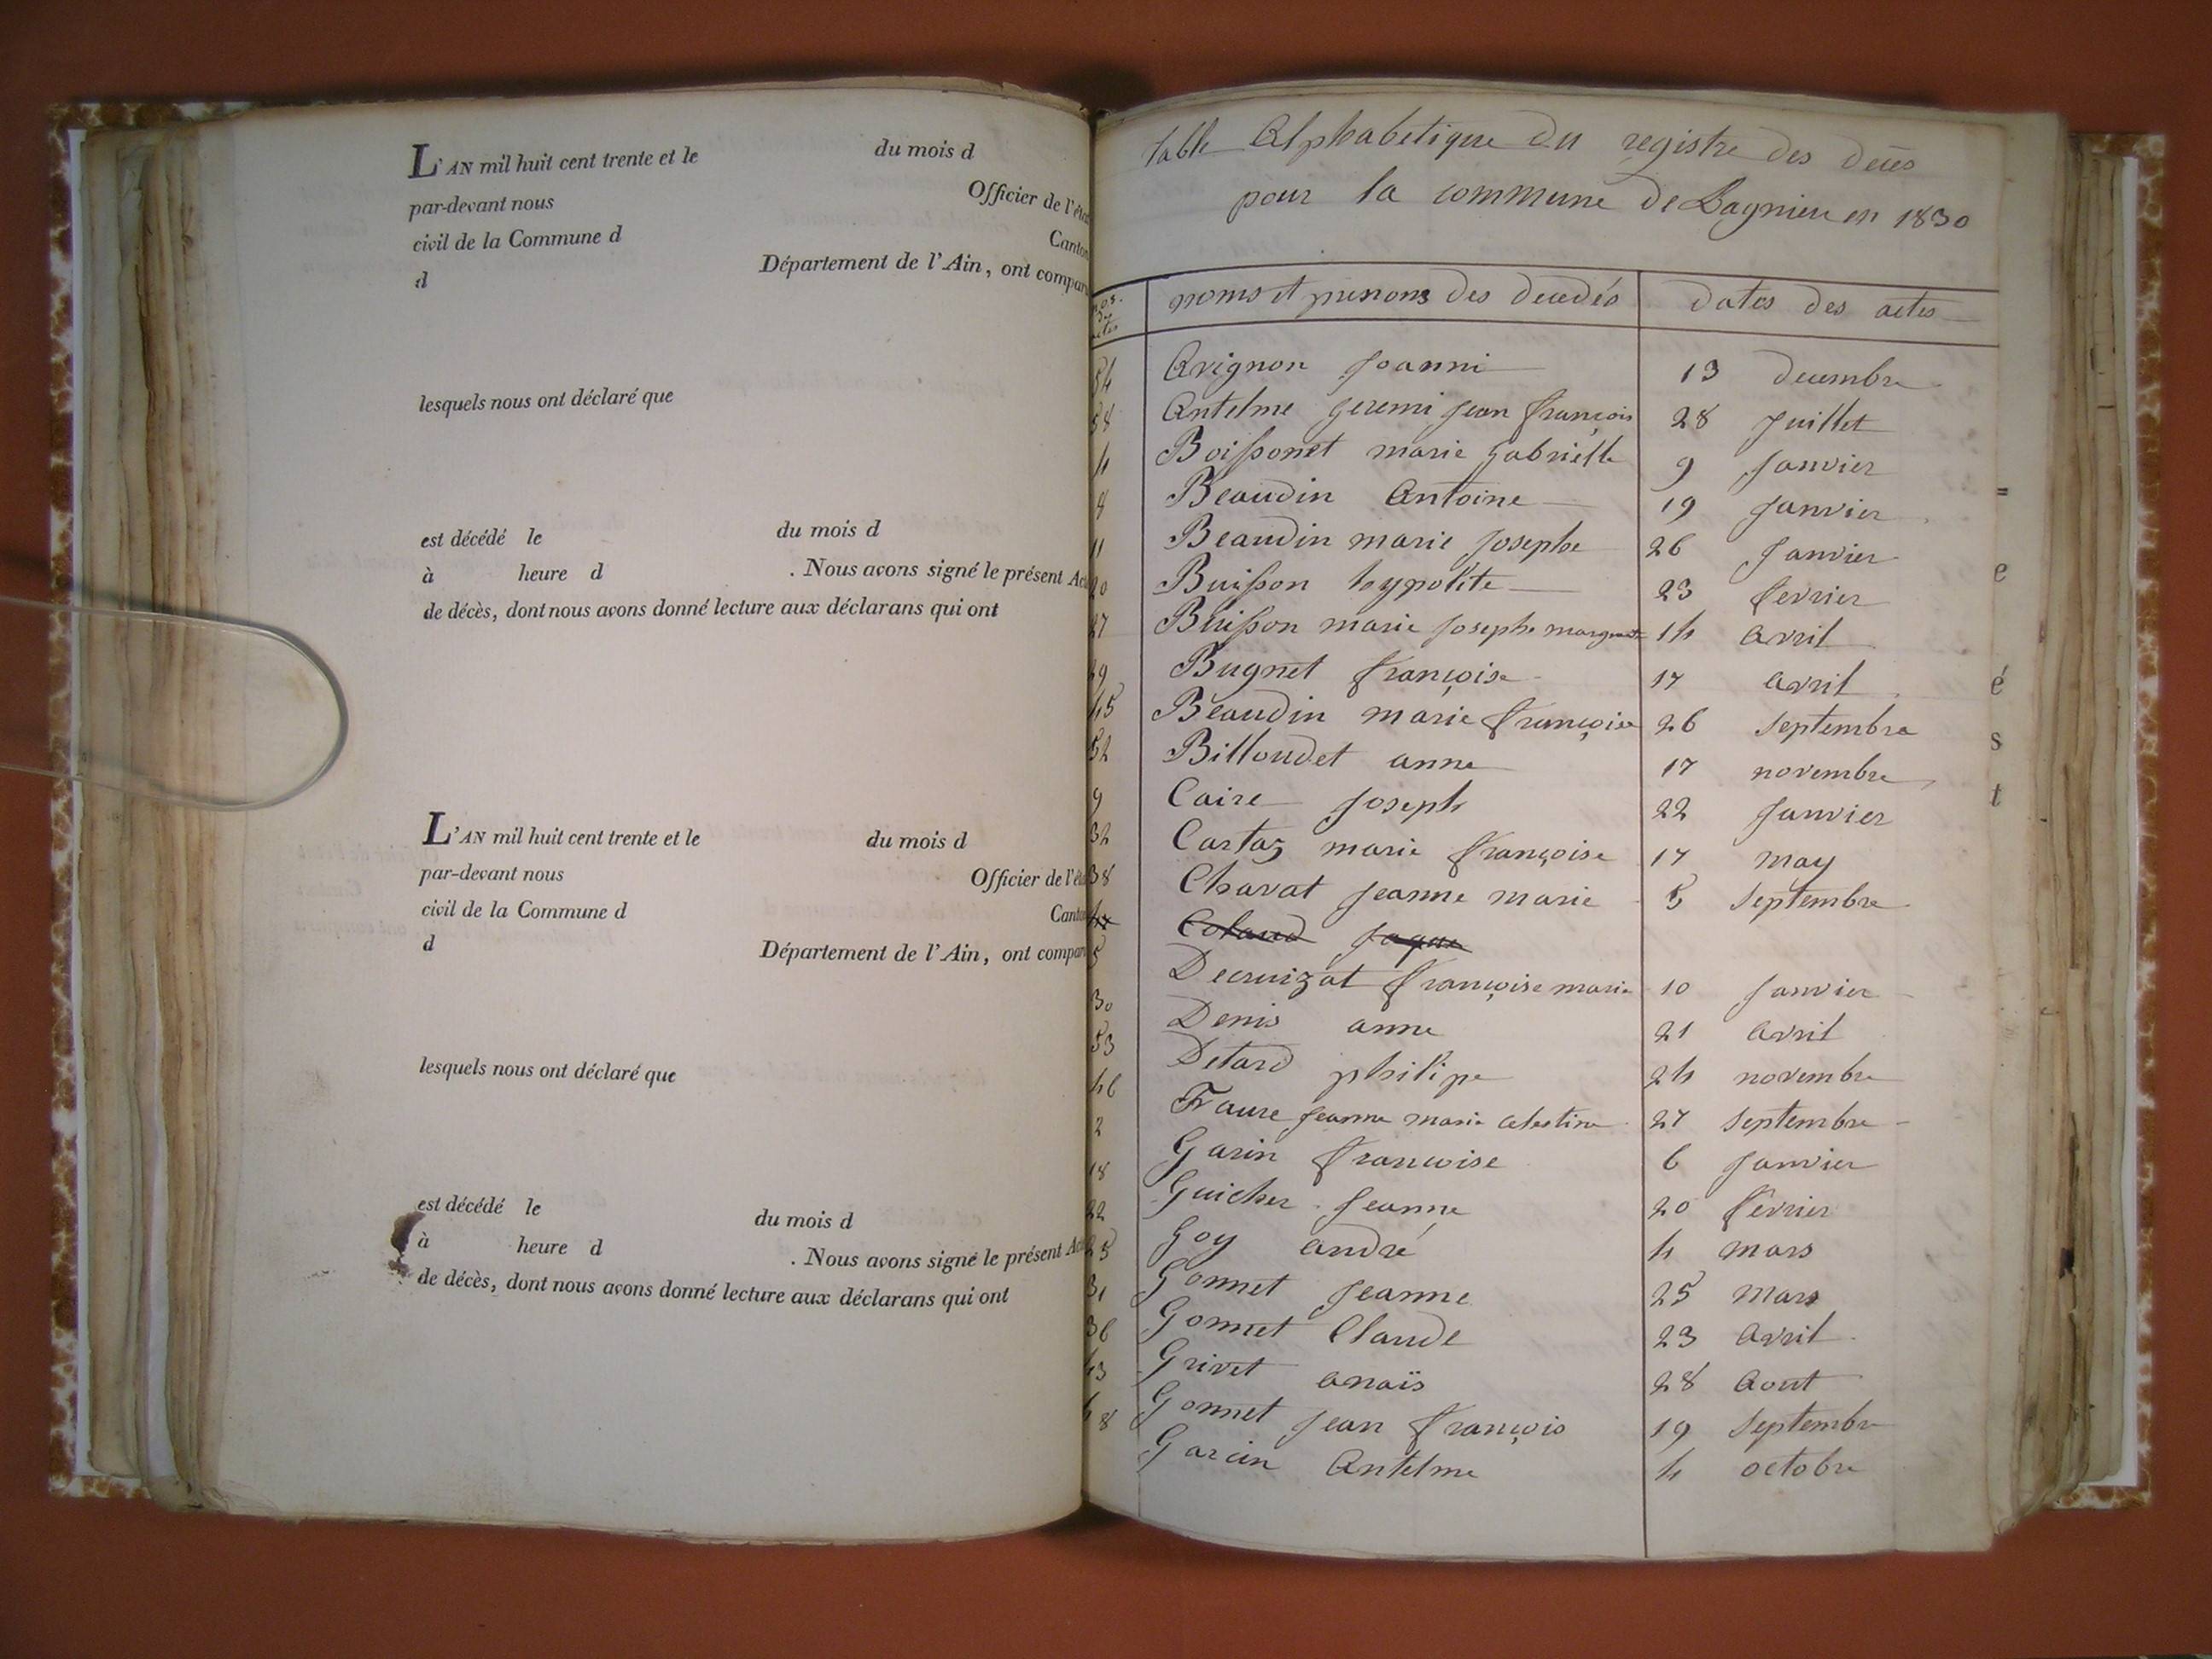 L'AN mil huit cent trente et le du mois d
par-devant nous Officier de l'éta
civil de la Commune d Canton
d Département de l'Ain, ont compar
lesquels nous ont déclaré que
est décédé le du mois d
à heure d . Nous avons signé le présent Ac
de décès, dont nous avons donné lecture aux déclarans qui ont
L'AN mil huit cent trente et le du mois d
par-devant nous Officier de l'éta
civil de la Commune d Canto
d Département de l'Ain, ont compar
lesquels nous ont déclaré que
est décédé le du mois d
à heure d . Nous avons signé le présent Ac
de décès, dont nous avons donné lecture aux déclarans qui ont
table Alphabetique du registre des décès
pour la commune de Lagnieu en 1830
nos. des actes noms et prenoms des decedés dates des actes
54 Avignon Joanni 13 decembre
Antelme Jeremi Jean françois 28 Juillet
4 Boissonet marie Gabrielle 9 Janvier
8 Beaudin Antoine 19 Janvier
11 Beaudin marie Josephe 26 Janvier
20 Buisson hypolite 23 fevrier
27 Buisson marie Josephe marguerite 14 avril
29 Bugnet françoise 17 avril
45 Beaudin marie françoise 26 septembre
52 Billoudet anne 17 novembre
9 Caire Joseph 22 Janvier
32 Cartaz marie françoise 17 may
38 Chavat Jeanne marie 5 septembre
Coland Jaque
5 Decruizat françoise marie 10 Janvier
30 Denis anne 21 avril
53 Detard philipe 24 novembre
46 Faure Jeanne marie celestine 27 septembre
2 Garin francoise 6 Janvier
18 Guicher Jeanne 20 fevrier
22 Goy andré 4 mars
25 Gonnet Jeanne 25 mars
31 Gonnet Claude 23 avril
36 Grivet anaïs 28 Aout
43 Gonnet Jean françois 19 septembre
48 Garcin Antelme 4 octobre
=
e
é
s
t